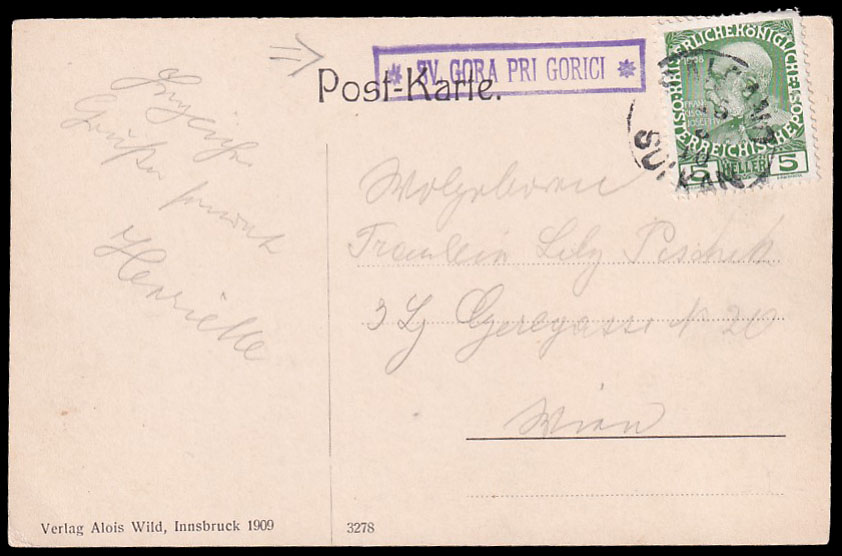 * ZV. GORA PRI GORICI *
Post-Karte.
KAISERLICHE KÖNIGLICHE
ÖSTERREICHISCHE POST
1908
5 HELLER 5
Grüße sendet
Henriette
Wolgeboren
Fräulein Lily Peschek
3 Gereegasse N 20
Wien
Verlag Alois Wild, Innsbruck 1909
3278